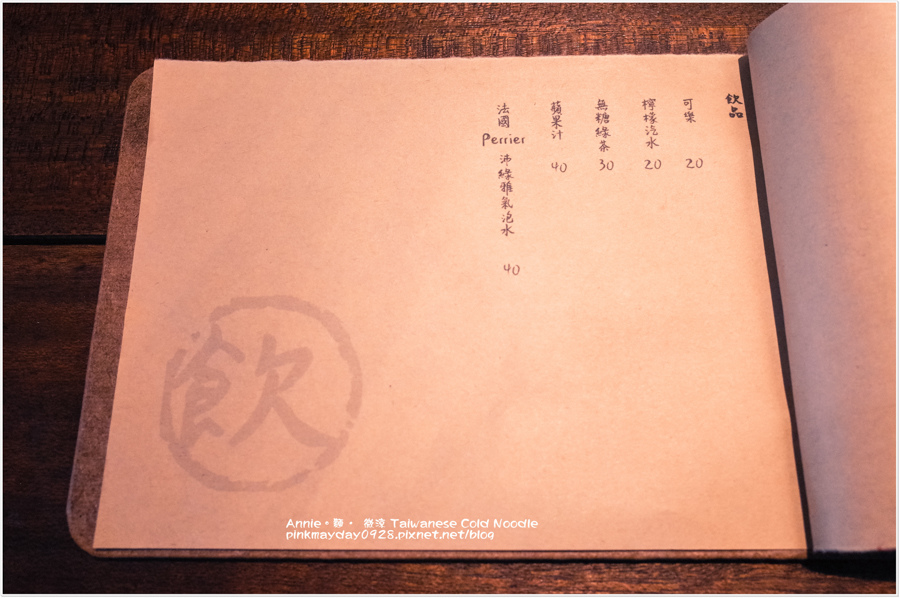 飲品
可樂 20
檸檬汽水 20
無糖綠茶 30
蘋果汁 40
法國 Perrier 沛綠雅氣泡水 40
飲
Annie。聊。 微涼 Taiwanese Cold Noodle
pinkmayday0928.pixnet.net/blog